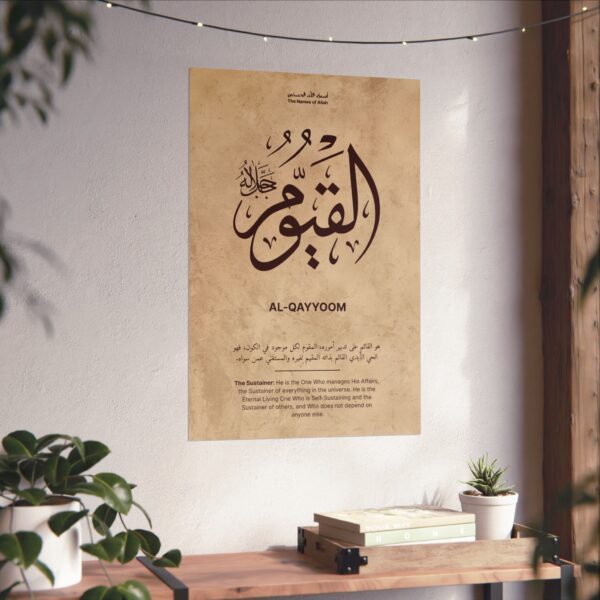 أسماء الله الحسنى
The Names of Allah
القَيُّومُ
جَلَّ جَلَالُهُ
AL-QAYYOOM
هو القائم على تدبير أموره، المقوم لكل موجود في الكون، فهو
الحي الأبدي القائم بذاته المقيم لغيره والمستغني عمن سواه.
The Sustainer: He is the One Who manages His Affairs,
the Sustainer of everything in the universe. He is the
Eternal Living One Who is Self-Sustaining and the
Sustainer of others, and Who does not depend on
anyone else.